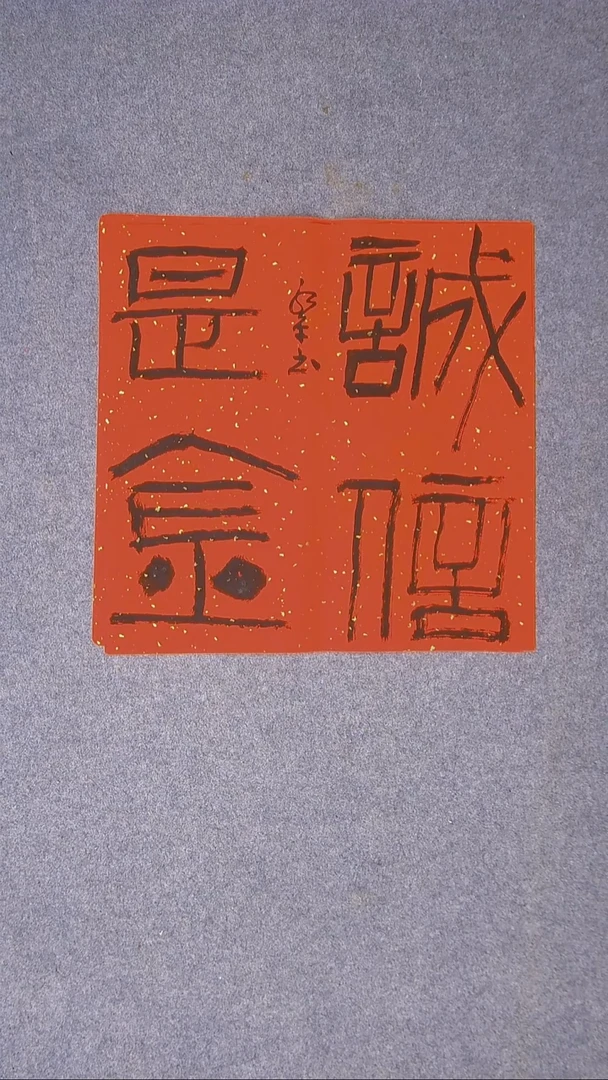 誠信
是金